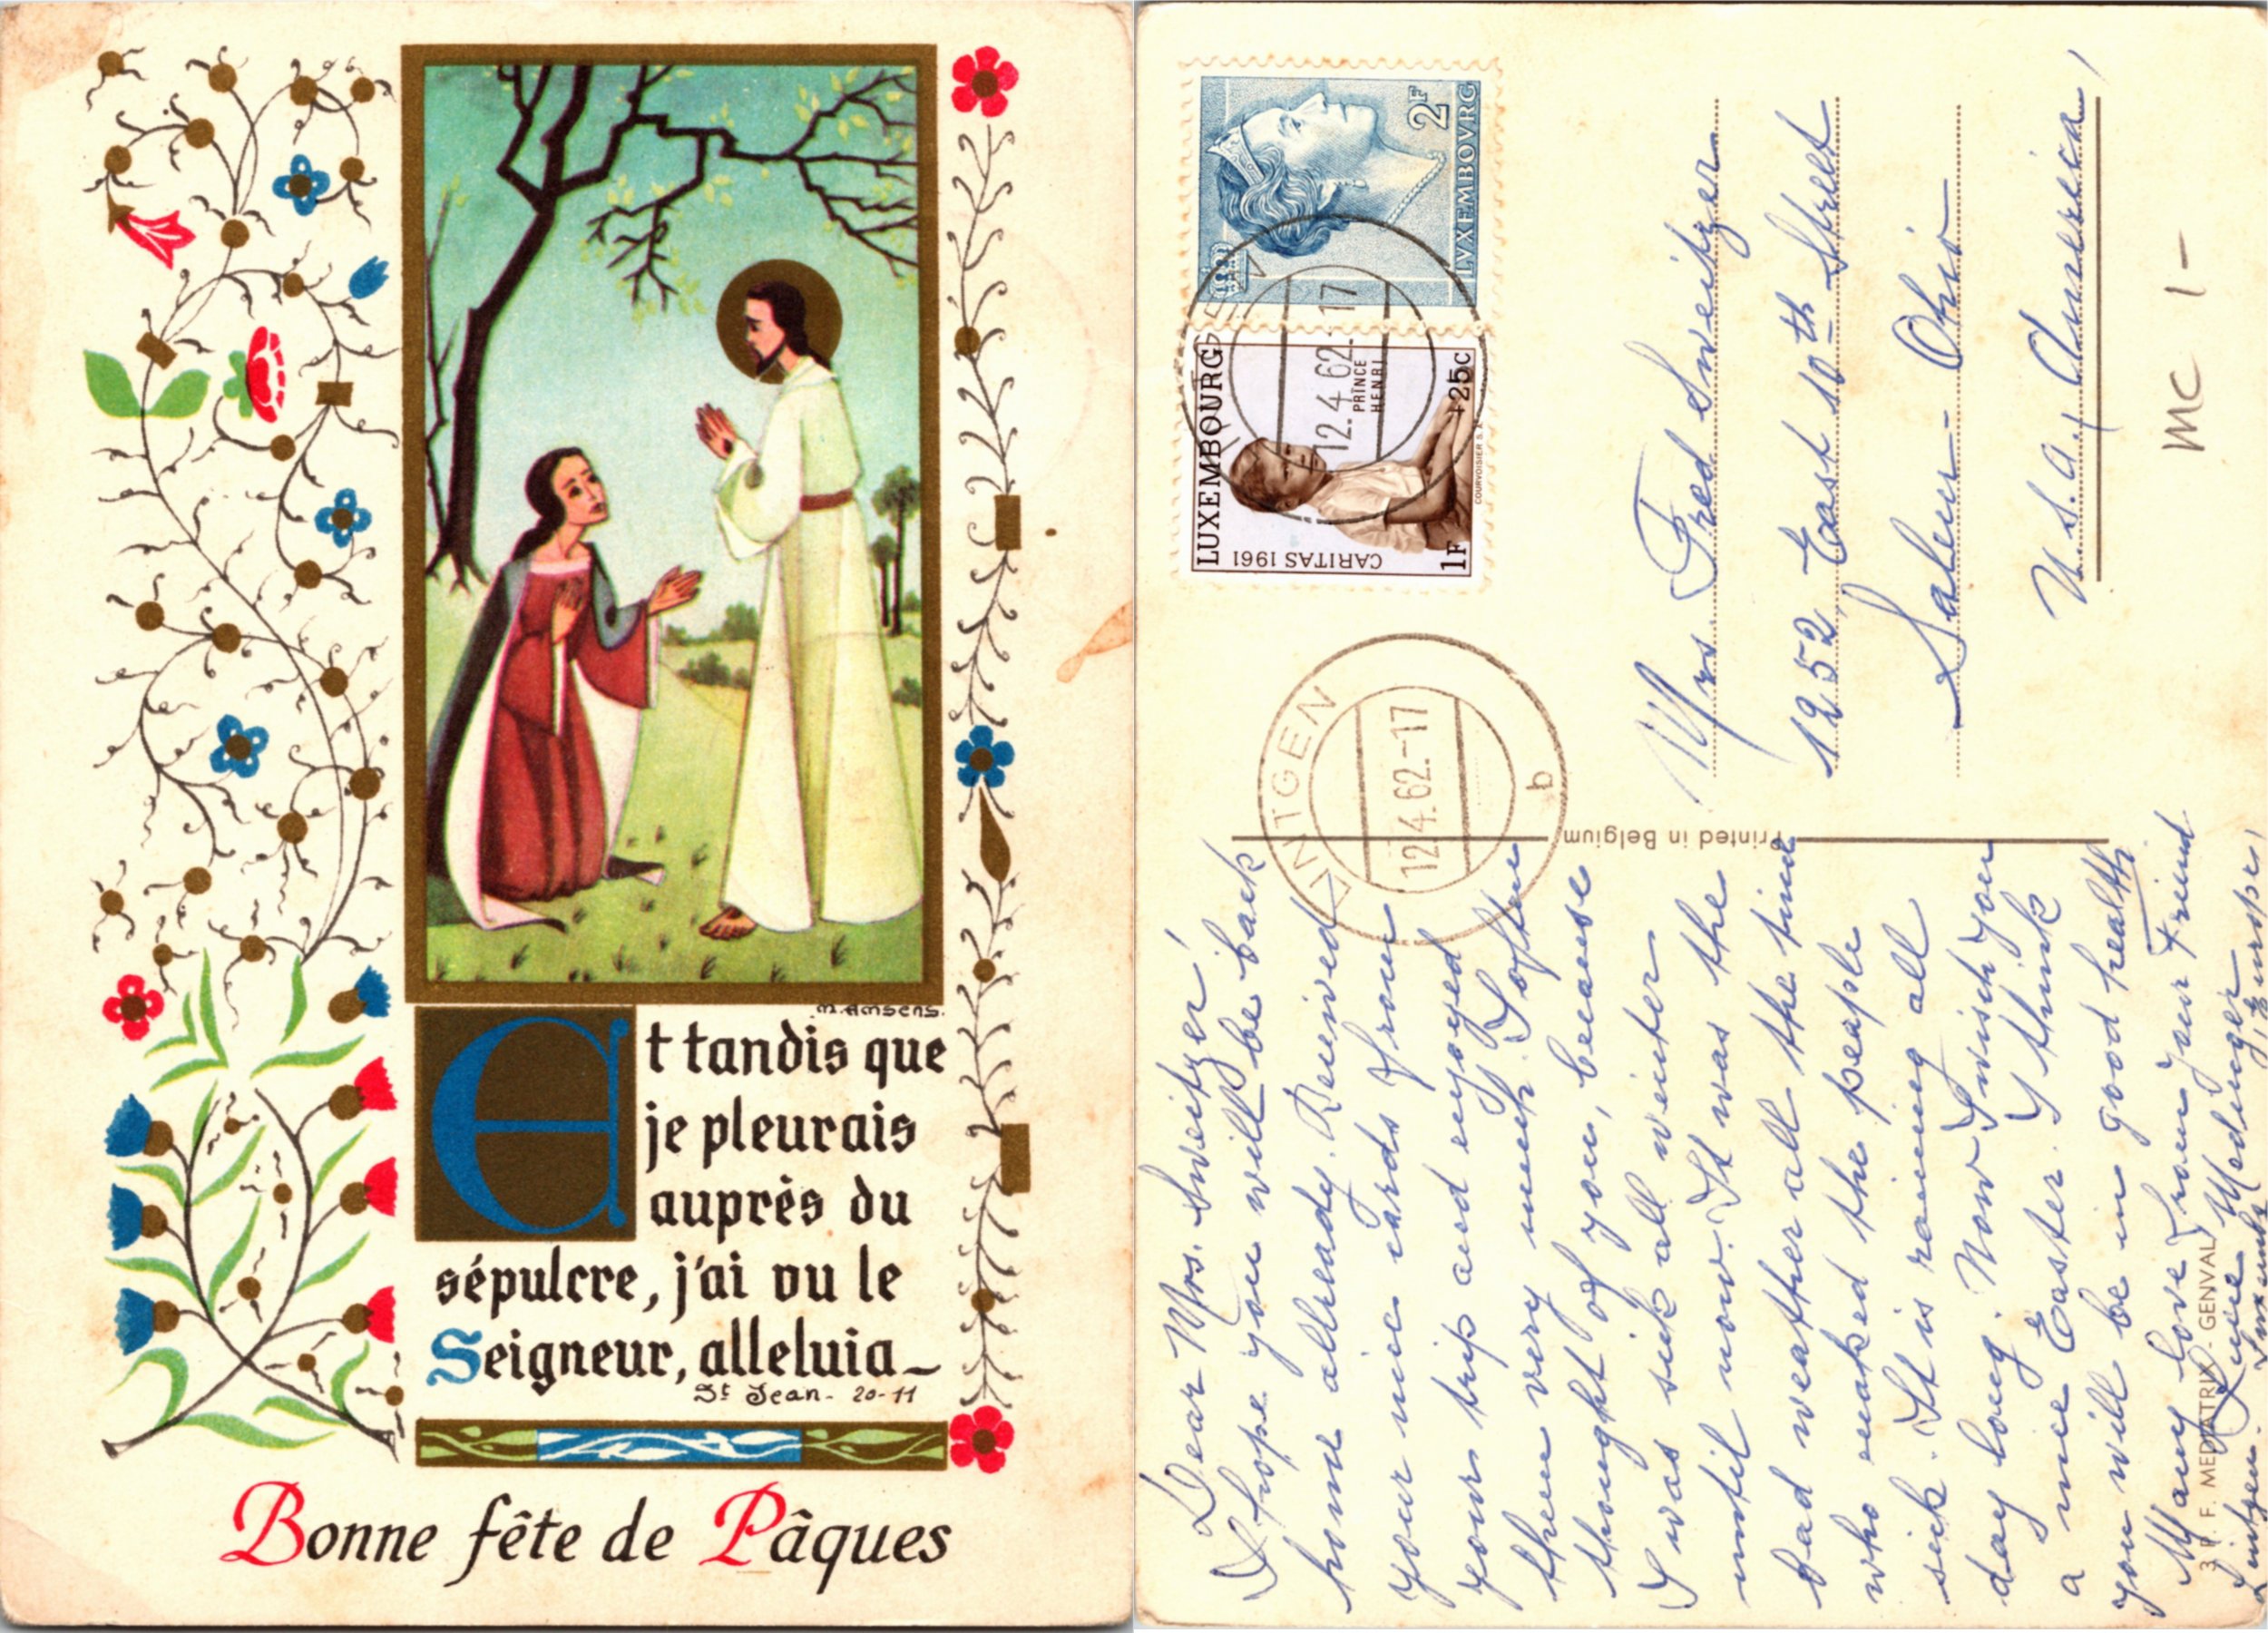 M. Amsens.
Et tandis que
je pleurais
auprès du
sépulcre, j'ai vu le
Seigneur, alleluia_
St Jean - 20-11
Bonne fête de Pâques
LVXEMBOVRG
2F
LUXEMBOURG
CARITAS 1961
1F
+25c
PRINCE
HENRI
COURVOISIER S.A.
12.4.62-17
LINTGEN
12.4.62.-17
b
Mrs. Fred Sweitzer
1252 East 10th Street
Salem - Ohio
U.S.A., America
MC 1-
Printed in Belgium
Dear Mrs. Sweitzer!
I hope you will be back
home allready. Received
your nice cards from
your trip and enjoyed
them very much. I often
thought of you, because
I was sick all winter
until now. It was the
bad weather all the time
who maked the people
sick. It is raining all
day long. Now I wish you
a nice Easter. I think
you will be in good health
Many love from your Freind
Medinger
3 P. F. MEDIATRIX. GENVAL